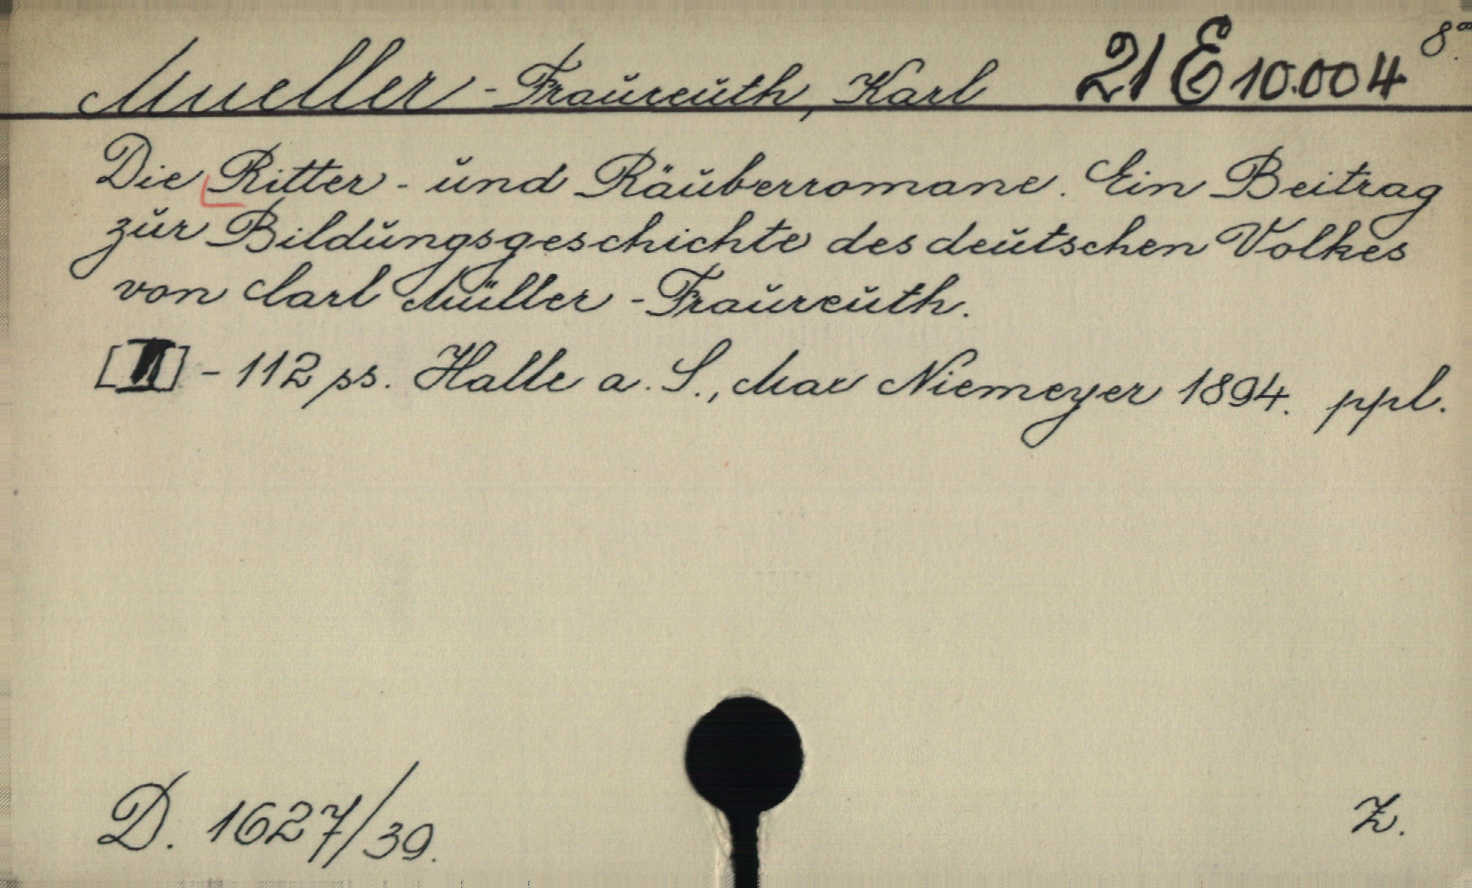 Mueller-Fraureuth, Karl 21 E 10.004 8°.
Die Ritter- und Räuberromane. Ein Beitrag
zur Bildungsgeschichte des deutschen Volkes
von Carl Müller-Fraureuth.
[II] - 112 ps. Halle a. S., Max Niemeyer 1894. ppl.
D. 1627/39. Z.